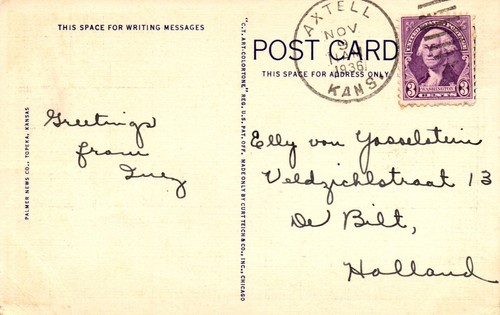 THIS SPACE FOR WRITING MESSAGES
Greetings
from
Inez
PALMER NEWS CO., TOPEKA, KANSAS
"C.T. ART-COLORTONE" REG. U.S. PAT. OFF. MADE ONLY BY CURT TEICH & CO., INC., CHICAGO
POST CARD
THIS SPACE FOR ADDRESS ONLY
AXTELL
NOV
1936
KANS
UNITED STATES POSTAGE
3 WASHINGTON 3
CENTS
Elly von Yosselstein
Veldzichtstraat 13
De Bilt,
Holland